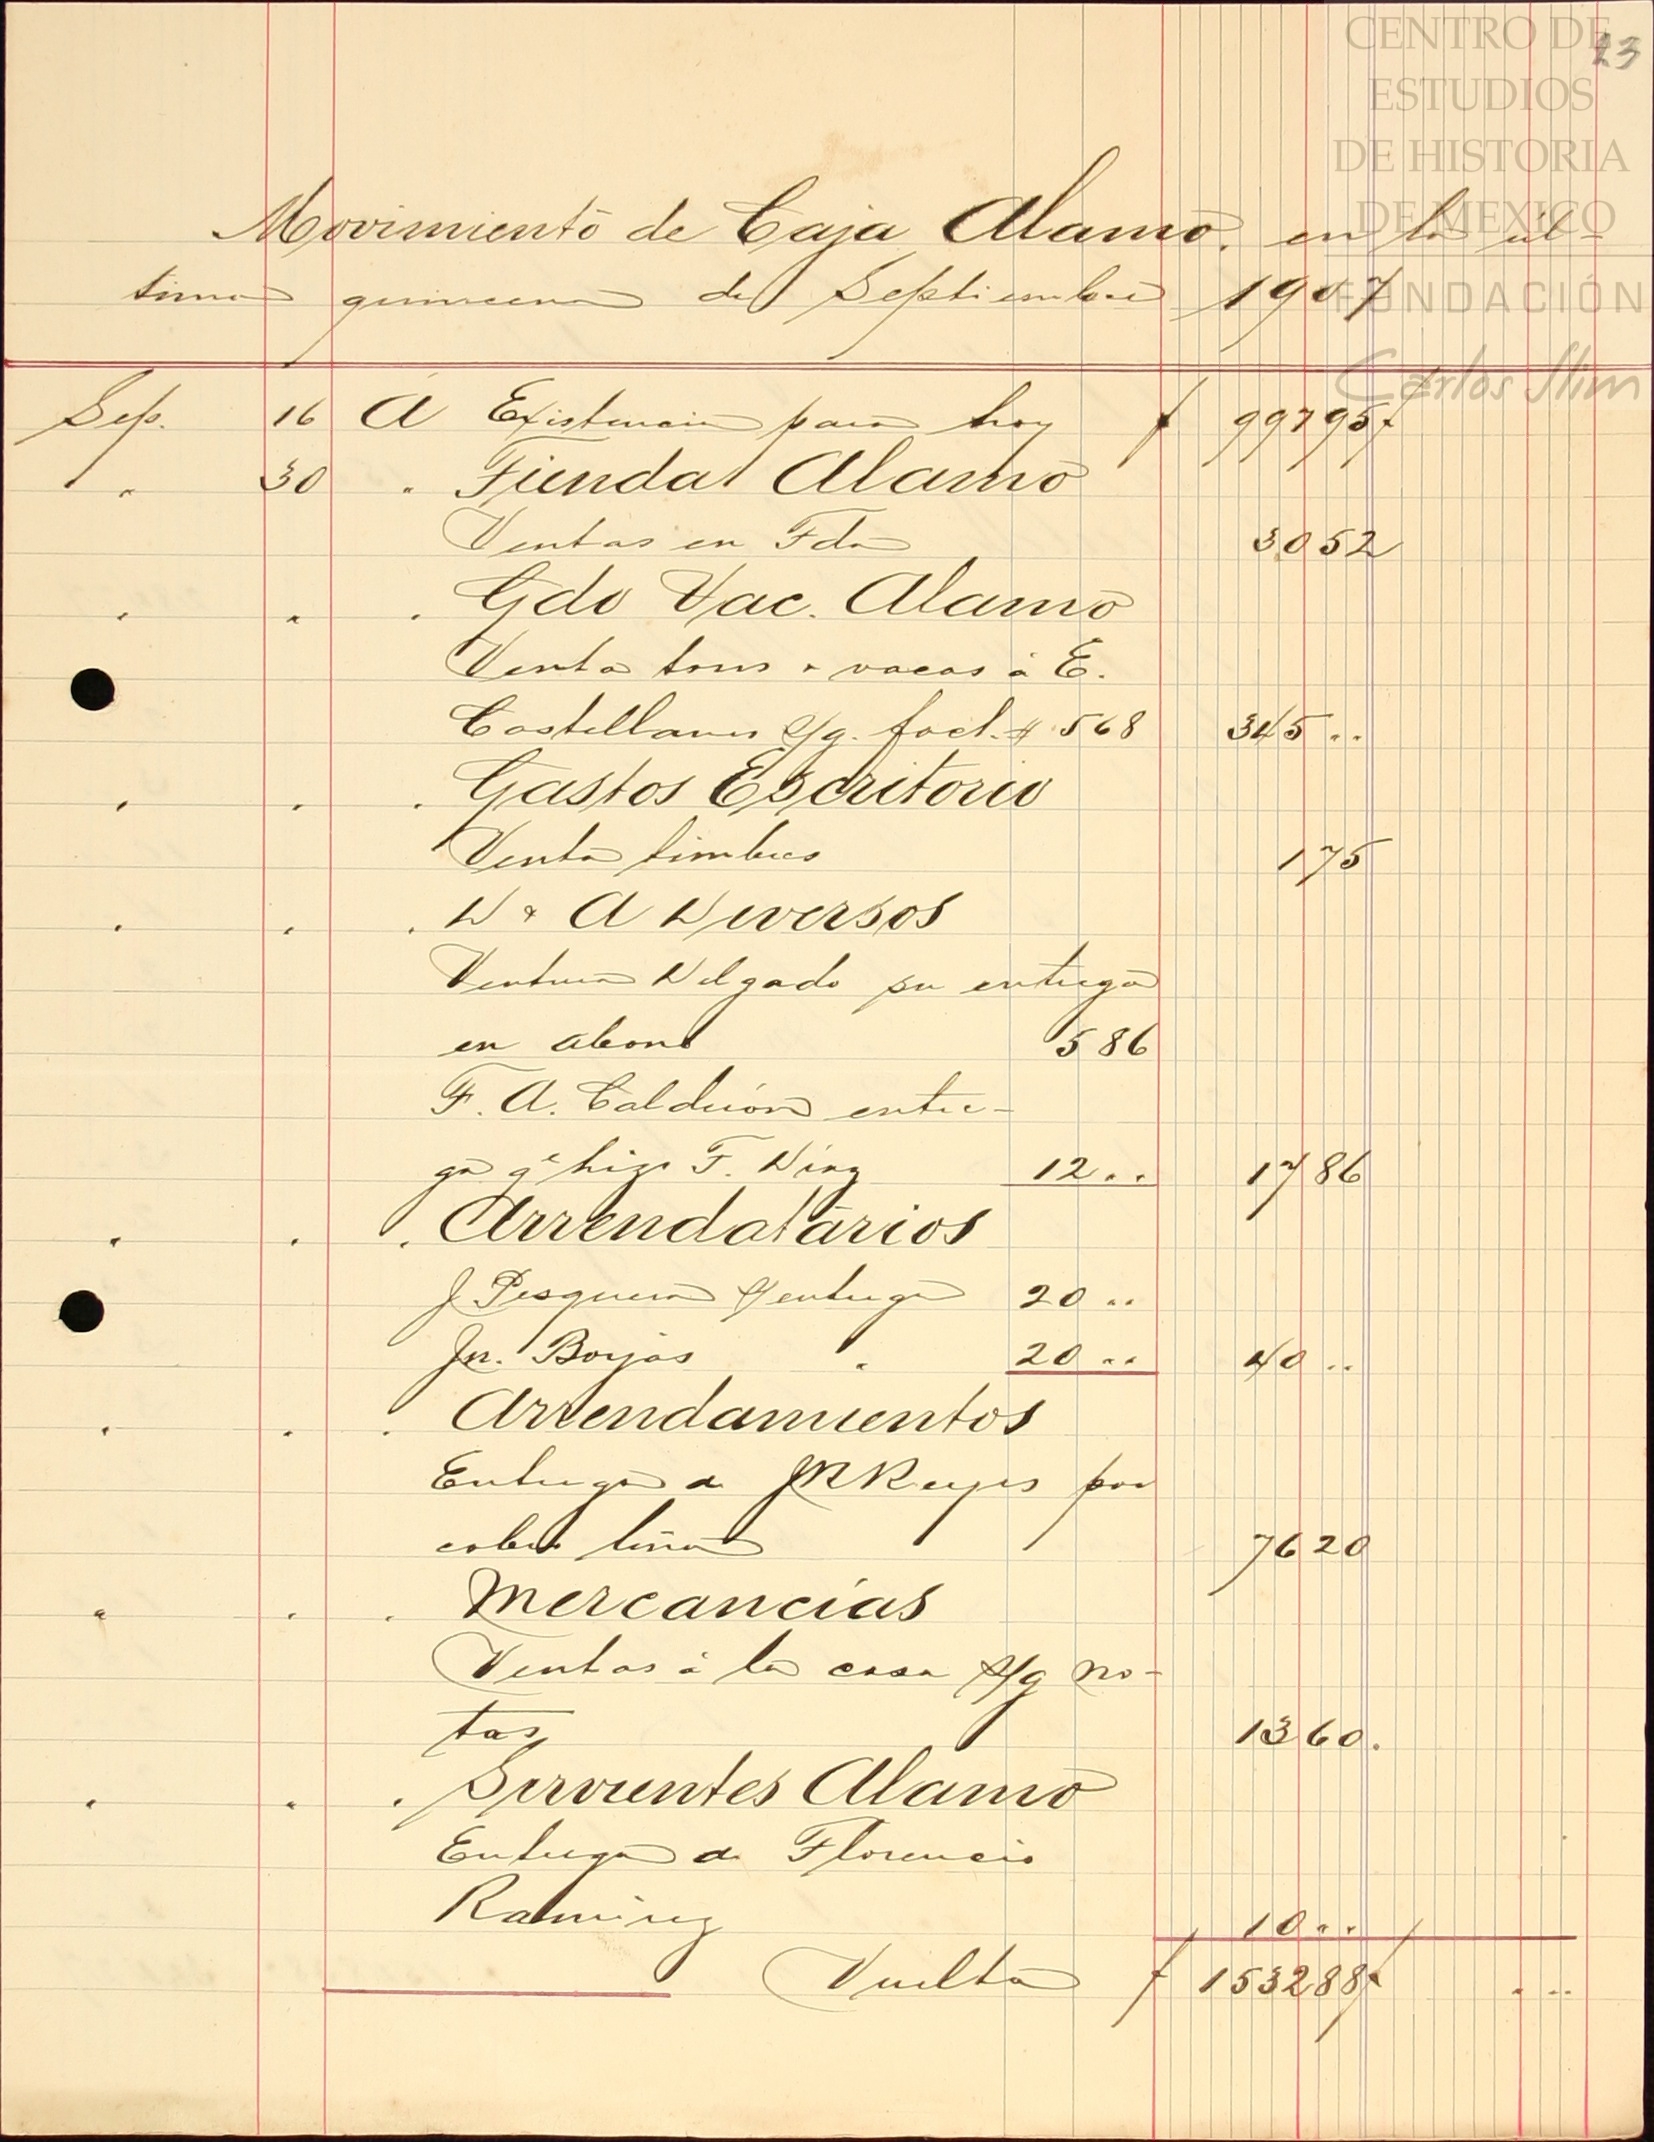 CENTRO DE
ESTUDIOS
DE HISTORIA
DE MEXICO
FUNDACIÓN
Carlos Slim
23
Movimiento de Caja Alamo. en la úl-
tima quincena de Septiembre 1907
Sep. 16 A Existencia para hoy $ 997 95
" 30 " Tienda Alamo
Ventas en Fda 30 52
" " " Gdo Vac. Alamo
Venta toros y vacas á E.
Castellanos s/g. fact. # 568 345 ..
" " " Gastos Escritorio
Venta timbres 1 75
" " " D y A Diversos
Ventura Delgado su entrega
en abono 5 86
F. A. Calderón entre-
ga qe hizo F. Diaz 12 .. 17 86
" " " Arrendatários
J Pesqueira s/entrega 20 ..
Jn. Borjas " 20 .. 40 ..
" " " Arrendamientos
Entrega de JR Reyes por
cobro leña 76 20
" " " Mercancías
Ventas á la casa s/g no-
tas 13 60.
" " " Sirvientes Alamo
Entrega de Florencio
Ramirez 10 ..
Vuelta $ 1532 88